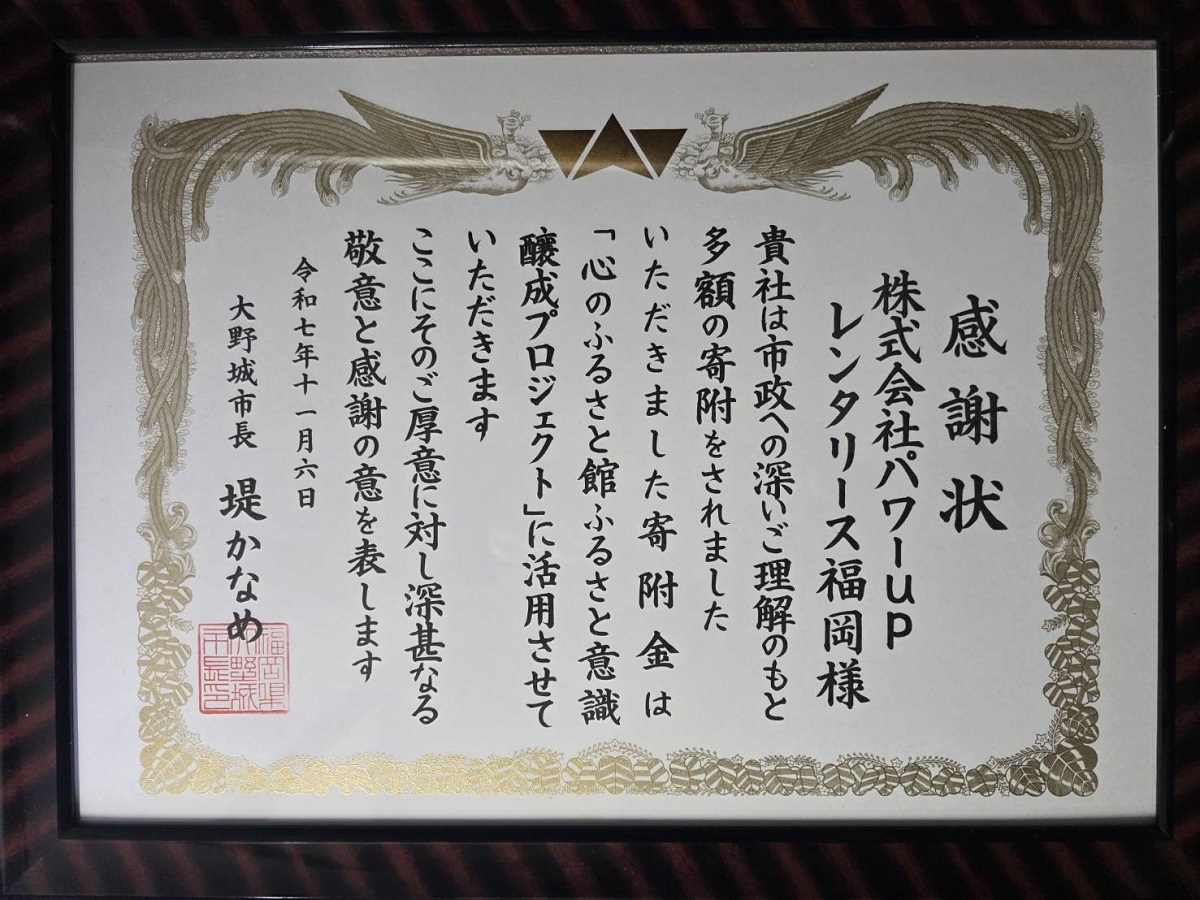 感謝状
株式会社パワーup
レンタリース福岡様
貴社は市政への深いご理解のもと
多額の寄附をされました
いただきました寄附金は
「心のふるさと館ふるさと意識
醸成プロジェクト」に活用させて
いただきます
ここにそのご厚意に対し深甚なる
敬意と感謝の意を表します
令和七年十一月六日
大野城市長 堤かなめ
福岡県
大野城
市長印